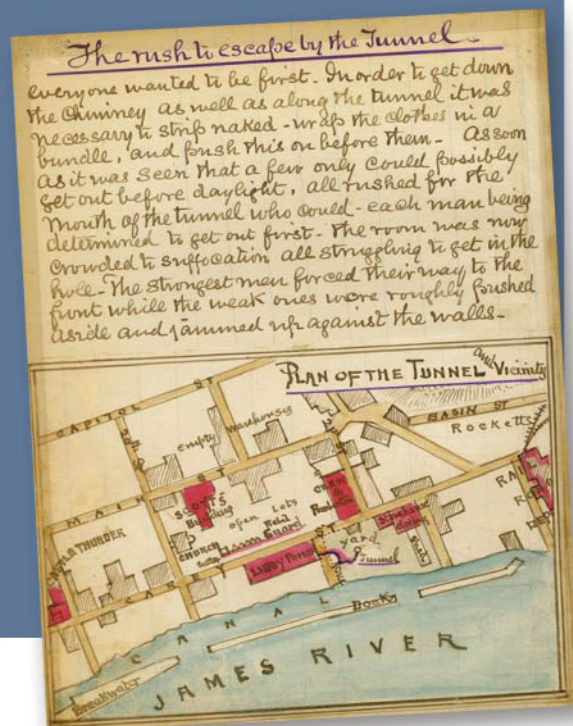 The rush to escape by the Tunnel
everyone wanted to be first - In order to get down
the Chimney as well as along the tunnel it was
necessary to strip naked - wrap the clothes in a
bundle, and push this on before them - As soon
as it was seen that a few only could possibly
get out before daylight, all rushed for the
mouth of the tunnel who could - each man being
determined to get out first - The room was now
crowded to suffocation all struggling to get in the
hole - The strongest men forced their way to the
front while the weak ones were roughly pushed
aside and jammed up against the walls -
PLAN OF THE TUNNEL and Vicinity
CAPITOL ST
BASIN ST
Rocketts
empty warehouses
MAIN ST
SCOTT'S
Building
open Lots
CASTLE THUNDER
CHURCH
Guard
yard
Tunnel
LIBBY PRISON
CAREY ST
RAIL
ROAD
CANAL
Docks
Breakwater
JAMES RIVER